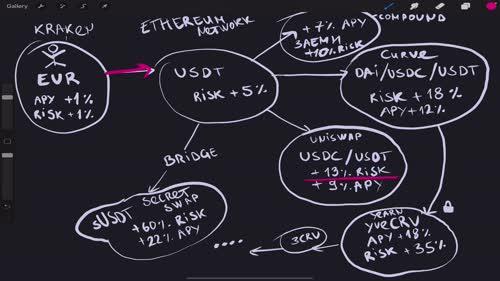 Gallery
KRAKEN
ETHEREUM
NETWORK
COMPOUND
+7% APY
ЗАЕМИ
+10% RISK
EUR
APY +1%
RISK +1%
USDT
RISK +5%
CURVE
DAi/USDC/USDT
RISK +18%
APY +12%
UNISWAP
USDC/USDT
+13% RISK
+9% APY
BRIDGE
SECRET
SWAP
sUSDT
+60% RISK
+22% APY
....
3CRV
YEARN
yveCRV
APY +18%
RISK +35%